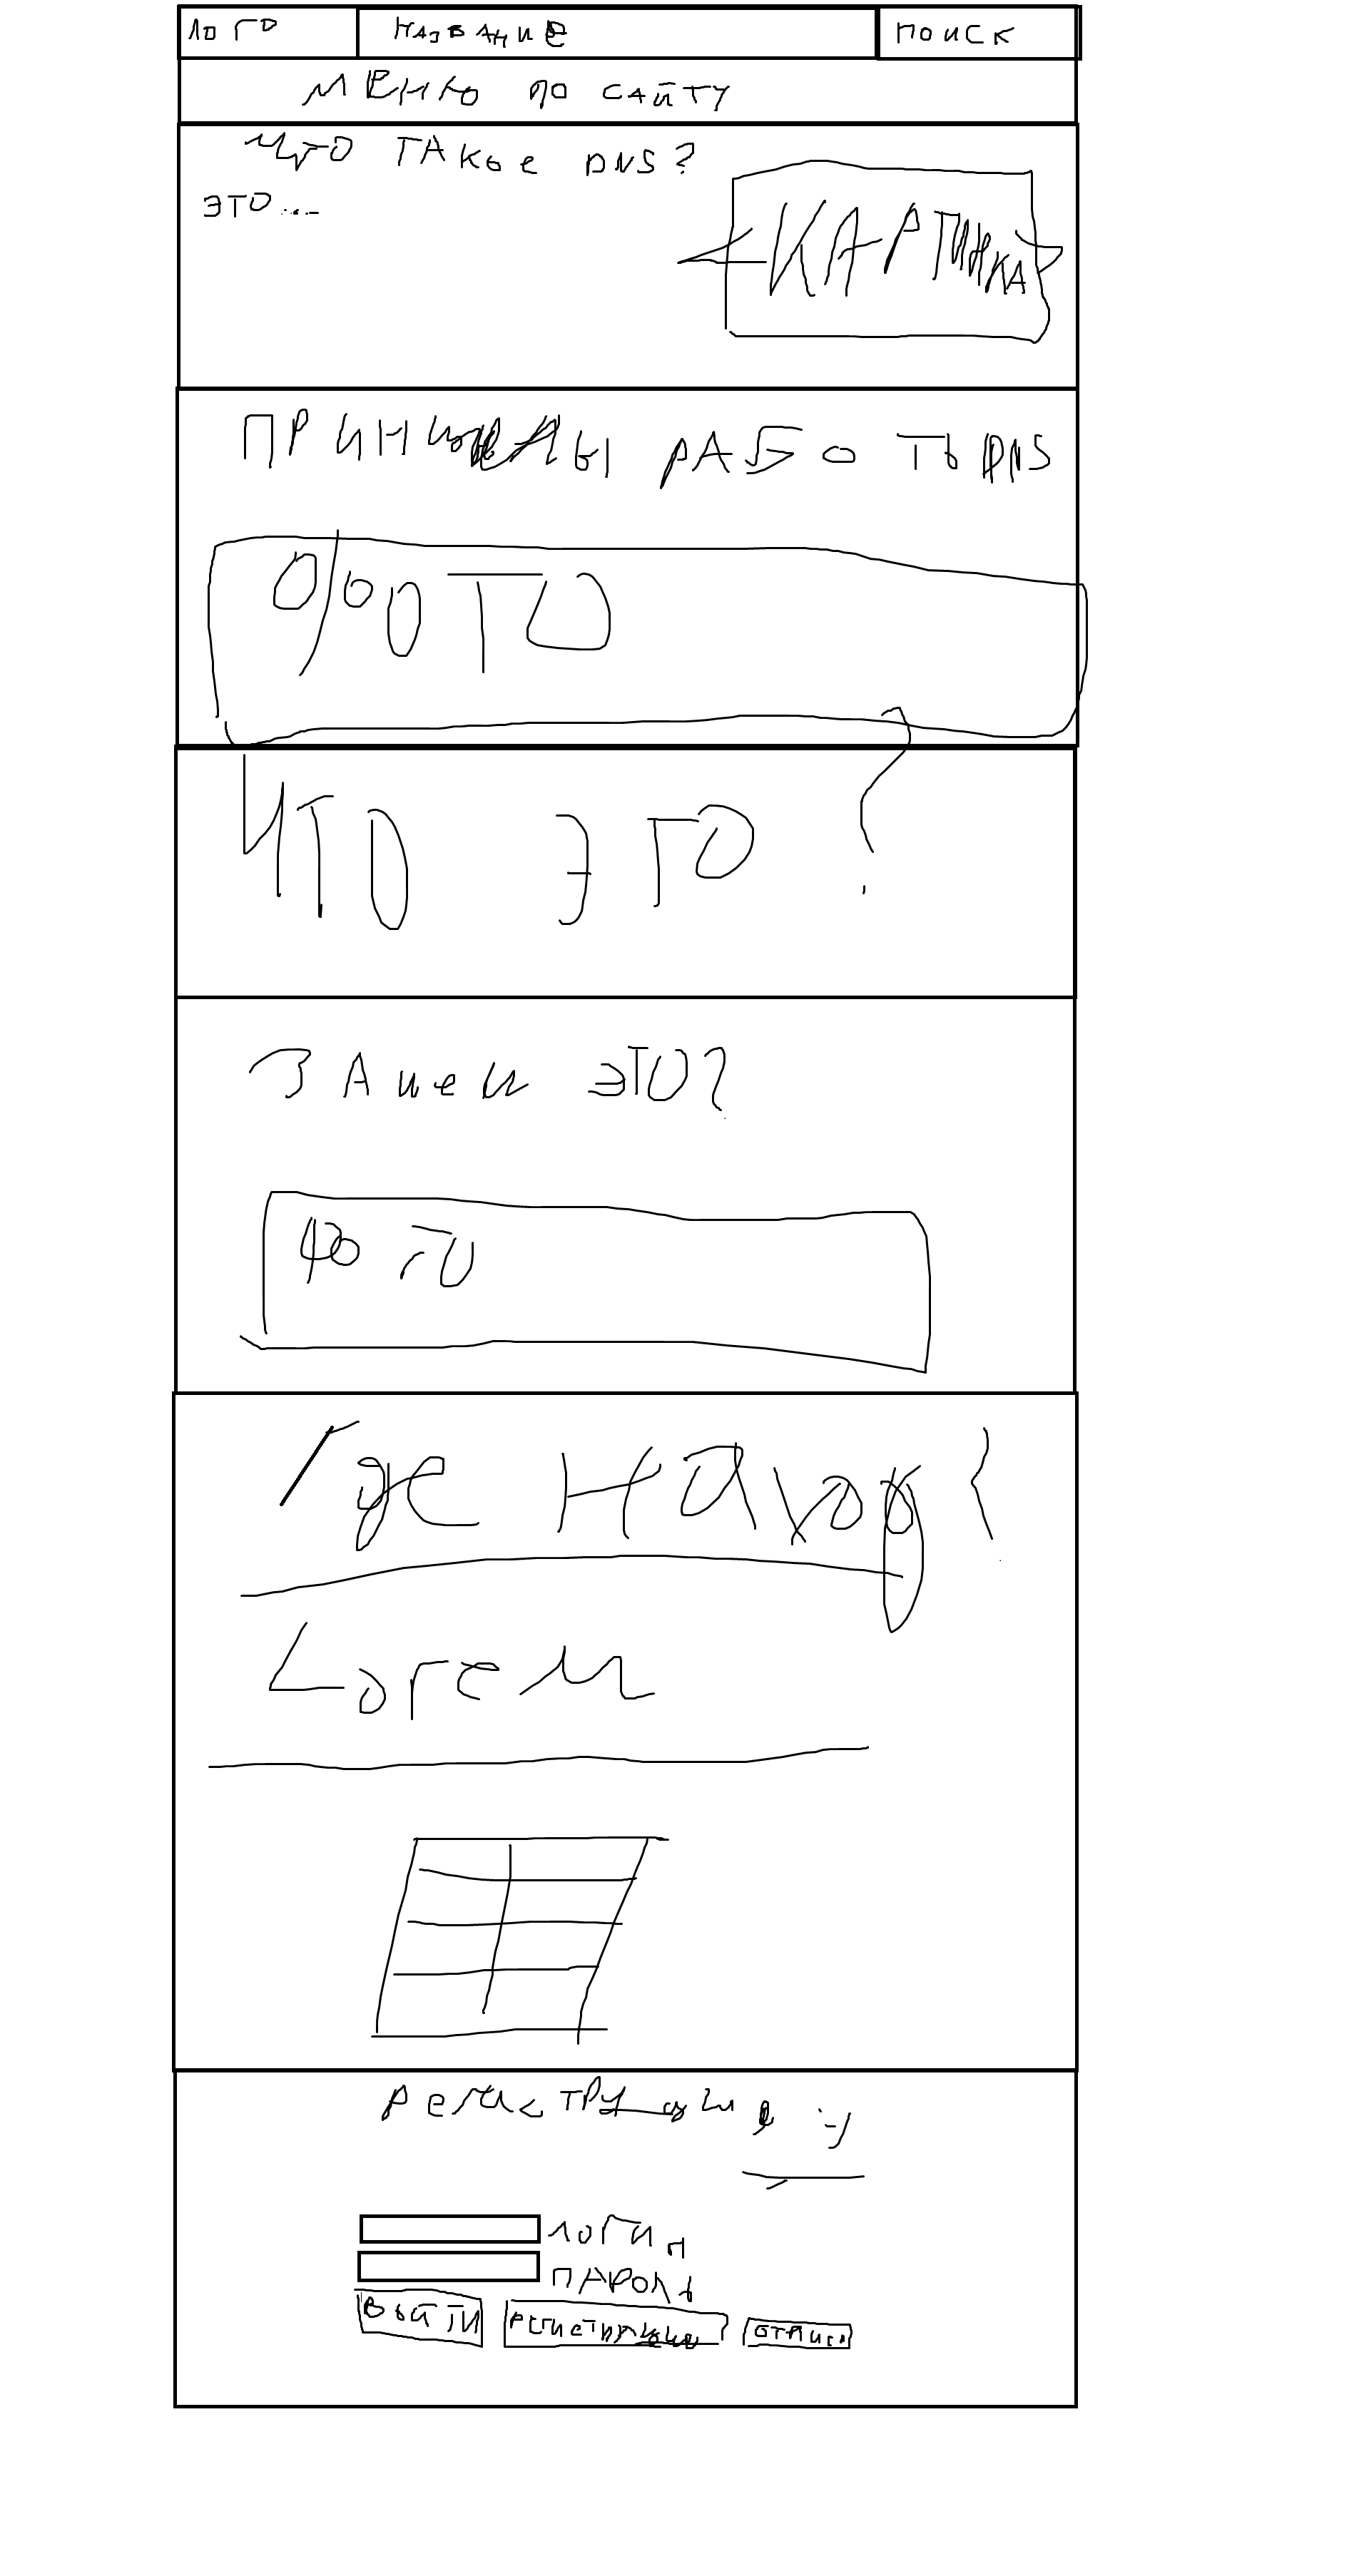 ЛОГО НАЗВАНИЕ ПОИСК
МЕНЮ ПО САЙТУ
ЧТО ТАКОЕ DNS?
ЭТО...
КАРТИНКА
ПРИНЦИПЫ РАБОТЫ DNS
ФОТО
ЧТО ЭТО?
ЗАЧЕМ ЭТО?
ФОТО
Где Наход?
Lorem
регистрация :-)
ЛОГИН
ПАРОЛЬ
ВОЙТИ регистрация